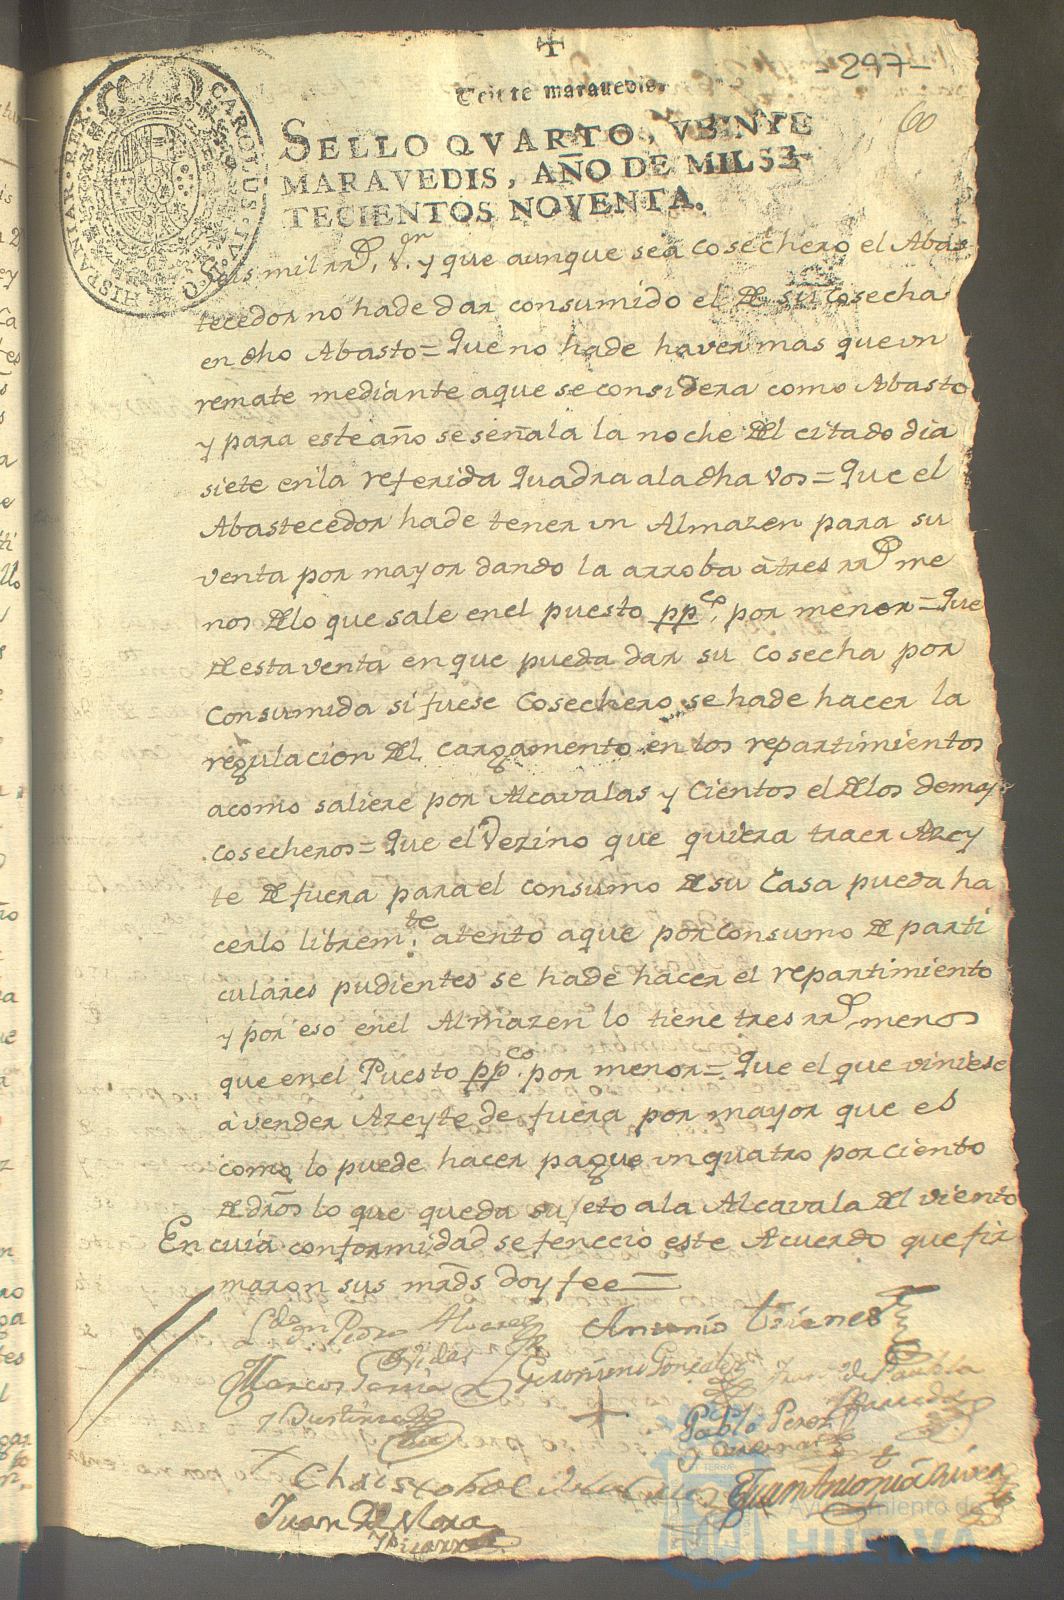 -297-
60
Veinte maravedis.
SELLO QVARTO, VEINTE
MARAVEDIS, AÑO DE MIL SE-
TECIENTOS NOVENTA.
CAROLUS IV D G HISPANIAR REX
mil rrs. Vn. y que aunque sea cosechero el Abas
tecedor no hade dar consumido el de su Cosecha
en dho Abasto = Que no hade haver mas que vn
remate mediante aque se considera como Abasto
y para este año se señala la noche del citado dia
siete en la referida quadra ala dha vos = Que el
Abastecedor hade tener vn Almazen para su
venta por mayor dando la arroba à tres rrs. me
nos delo que sale en el puesto ppco. por menor = Que
de esta venta en que pueda dar su cosecha por
Consumida si fuese Cosechero se hade hacer la
regulacion del cargamento en los repartimientos
acomo saliere por Alcavalas y Cientos el delos demas
cosecheros = Que el Vezino que quiera traer Azey
te de fuera para el consumo de su Casa pueda ha
cerlo librem.te atento aque por consumo de parti
culares pudientes se hade hacer el repartimiento
y por eso en el Almazen lo tiene tres rrs. menos
que en el Puesto ppco. por menor = Que el que viniese
à vender Azeyte de fuera por mayor que es
como lo puede hacer pague vn quatro por ciento
de dros lo que queda sujeto ala Alcavala del viento
En cuia conformidad se fenecio este Acuerdo que fir
maron sus mrds doy fee =
Pedro Alvarez Antonio Trianes
Marcos Garcia Geronimo Gonzalez Fran. de Paula
Pablo Perez
Juan Antonio Rivera
Juan de Mora
y Pizarro
Ayuntamiento de
HUELVA